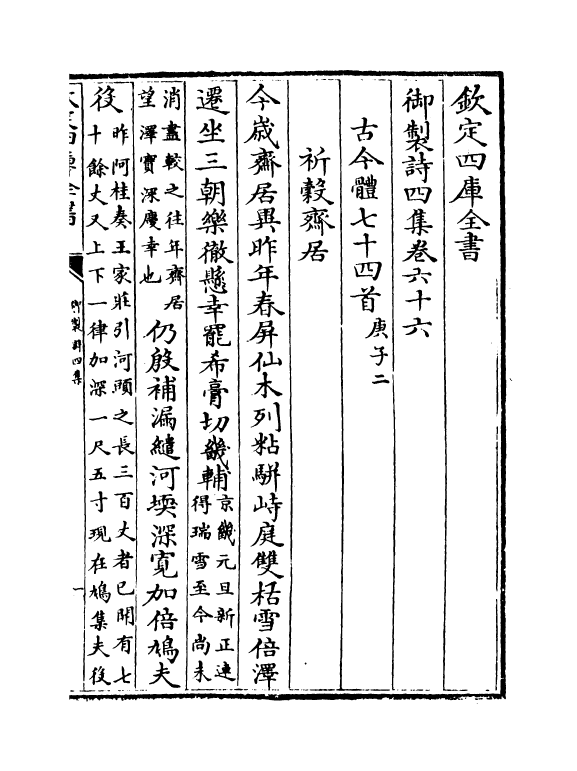 欽定四庫全書
御製詩四集卷六十六
古今體七十四首 庚子二
祈穀齋居
今歲齋居異昨年春屏仙木列粘駢峙庭雙栝雪倍澤
遷坐三朝樂徹懸幸罷希膏切畿輔 京畿元旦新正連 得瑞雪至今尚未
消盡較之往年齋居 望澤實深慶幸也 仍殷補漏繾河堧深寬加倍鳩夫
役 昨阿桂奏王家莊引河頭之長三百丈者已開有七 十餘丈又上下一律加深一尺五寸現在鳩集夫役
御製詩四集
一